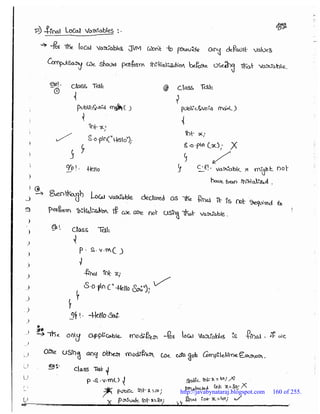 2) final Local Variables :-
→ for the local variables JVM won't to provide any default values
Compulsory we should perform initialization before using that variable.
Ex:- ① class Test
{
public s void main( )
{
int x;
S.o.pln("Hello");
}
}
O/p :- Hello
② class Test
{
public s void main( )
{
int x;
S.o.pln (x); X
}
} C.E:- variable x might not
have been initialized.
→ Eventhough Local variable declared as the final it is not required to
perform initialization if we are not using that variable.
Ex:- class Test
{
P. S. v. m( )
{
final int x;
S.o.pln ("Hello Sai");
}
}
O/p :- Hello Sai.
→ The only applicable modifier for local variables is final. if we
are using any other modifier we will get CompiletimeError.
Ex:- class Test {
P.S.v.m() {
public int x=10;
X private int x=10;
static int x=10; X
protected int x=10; X
final int x=10; ✓
http://javabynataraj.blogspot.com 160 of 255.